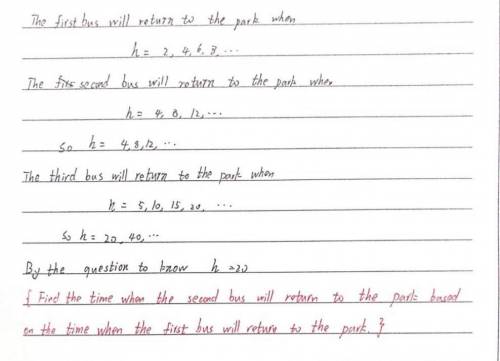 The first bus will return to the park when
h = 2, 4, 6, 8, ...
The second bus will return to the park when
h = 4, 8, 12, ...
so h = 4, 8, 12, ...
The third bus will return to the park when
h = 5, 10, 15, 20, ...
so h = 20, 40, ...
By the question to know h = 20
{ Find the time when the second bus will return to the park based
on the time when the first bus will return to the park. }